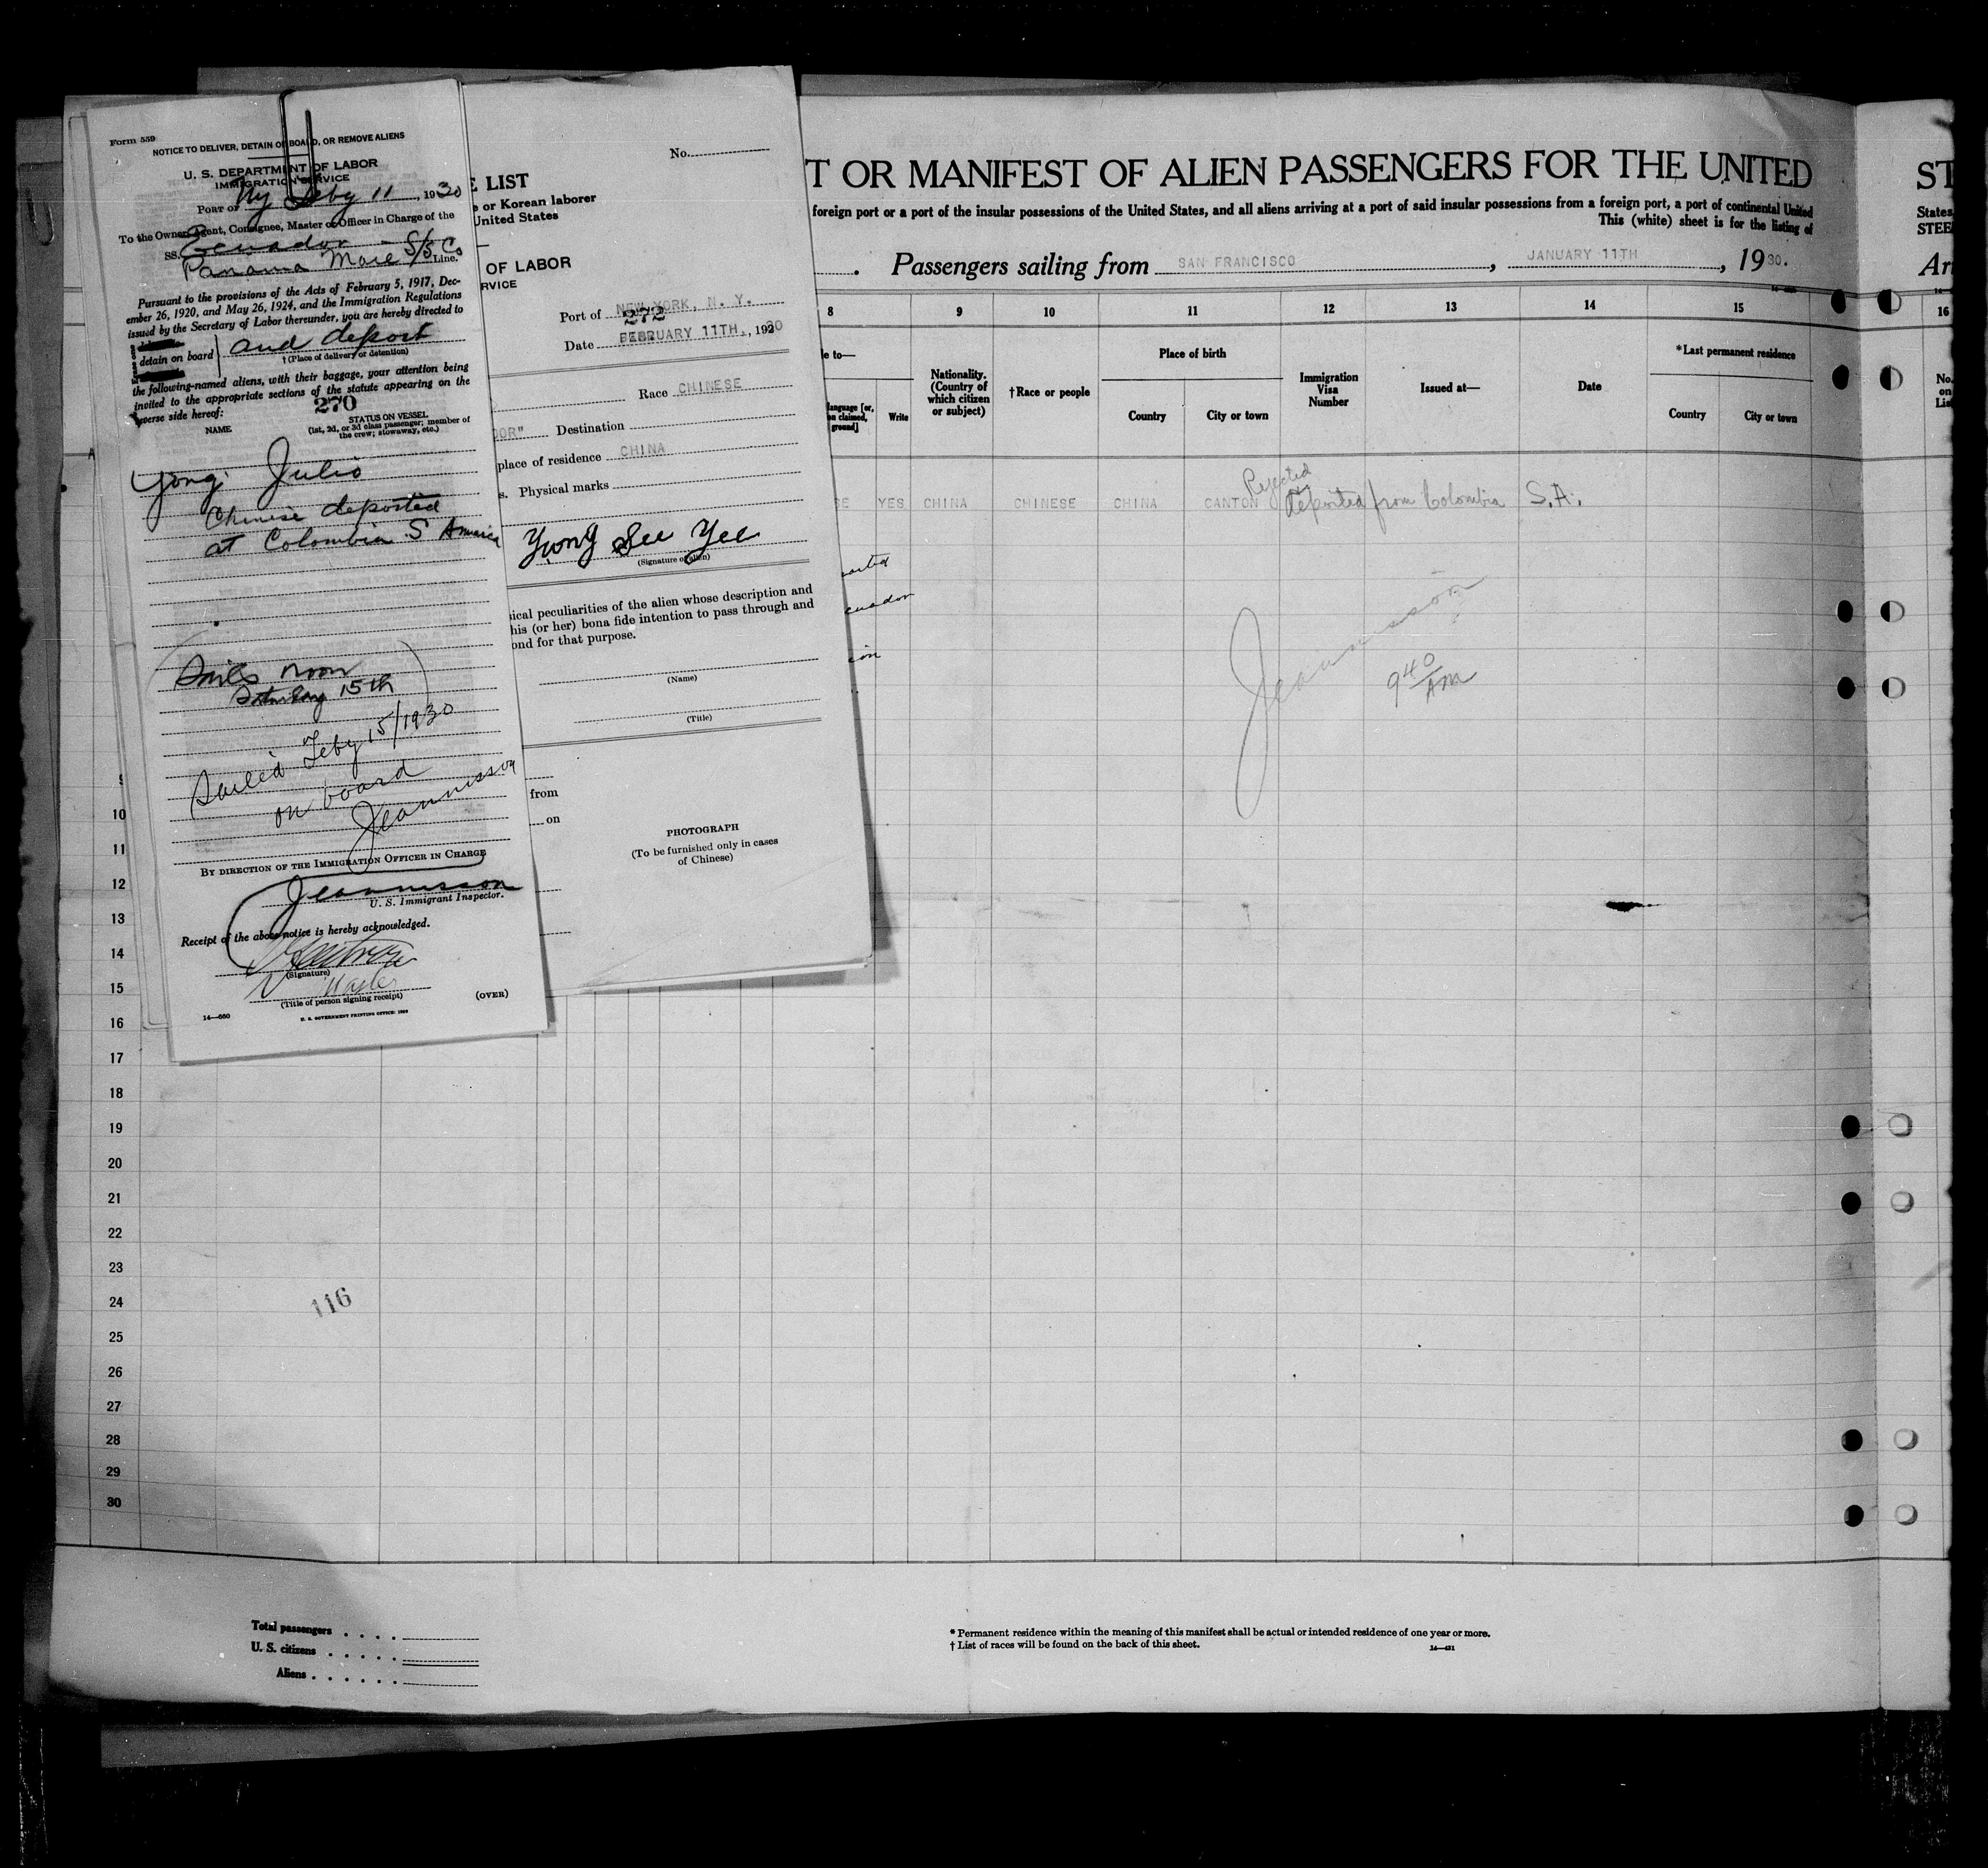 Form 559
NOTICE TO DELIVER, DETAIN ON BOARD, OR REMOVE ALIENS
U. S. DEPARTMENT OF LABOR
IMMIGRATION SERVICE
PORT OF Ny Feby 11, 1930
To the Owner, Agent, Consignee, Master or Officer in Charge of the
SS. Ecuador - S/S Co
Panama Mail Line.
Pursuant to the provisions of the Acts of February 5, 1917, Dec-
ember 26, 1920, and May 26, 1924, and the Immigration Regulations
issued by the Secretary of Labor thereunder, you are hereby directed to
detain on board and deport
† (Place of delivery or detention)
the following-named aliens, with their baggage, your attention being
invited to the appropriate sections of the statute appearing on the
reverse side hereof:
270
NAME
STATUS ON VESSEL
(1st, 2d, or 3d class passenger; member of
the crew; stowaway, etc.)
Yong Julio
Chinese deported
at Colombia S America
(Sails noon
Saturday 15th)
Sailed Feby 15/1930
on board
Jeannisson
BY DIRECTION OF THE IMMIGRATION OFFICER IN CHARGE
Jeannisson
U. S. Immigrant Inspector.
Receipt of the above notice is hereby acknowledged.
(Signature)
Master
(Title of person signing receipt)
(OVER)
14—660
U. S. GOVERNMENT PRINTING OFFICE: 1929
No.
E LIST
e or Korean laborer
United States
OF LABOR
RVICE
Port of NEW YORK, N. Y.
272
Date FEBRUARY 11TH., 1930
Race CHINESE
DOR" Destination
place of residence CHINA
s. Physical marks
Yung See Yee
(Signature of alien)
sical peculiarities of the alien whose description and
his (or her) bona fide intention to pass through and
ond for that purpose.
(Name)
(Title)
from
on
PHOTOGRAPH
(To be furnished only in cases
of Chinese)
T OR MANIFEST OF ALIEN PASSENGERS FOR THE UNITED
foreign port or a port of the insular possessions of the United States, and all aliens arriving at a port of said insular possessions from a foreign port, a port of continental United
This (white) sheet is for the listing of
Passengers sailing from SAN FRANCISCO, JANUARY 11TH, 1930.
8 9 10 11 12 13 14 15
le to—
language [or,
on claimed,
ground]
Write
Nationality.
(Country of
which citizen
or subject)
†Race or people
Place of birth
Country
City or town
Immigration
Visa
Number
Issued at—
Date
*Last permanent residence
Country
City or town
SE YES CHINA CHINESE CHINA CANTON Rejected or deported from Colombia S.A.
orted
cuador
Jeannisson
9 40 AM
9
10
11
12
13
14
15
16
17
18
19
20
21
22
23
24
25
26
27
28
29
30
116
Total passengers
U. S. citizens
Aliens
* Permanent residence within the meaning of this manifest shall be actual or intended residence of one year or more.
† List of races will be found on the back of this sheet.
14—431
ST
States
STEE
Ar
16
No.
on
List